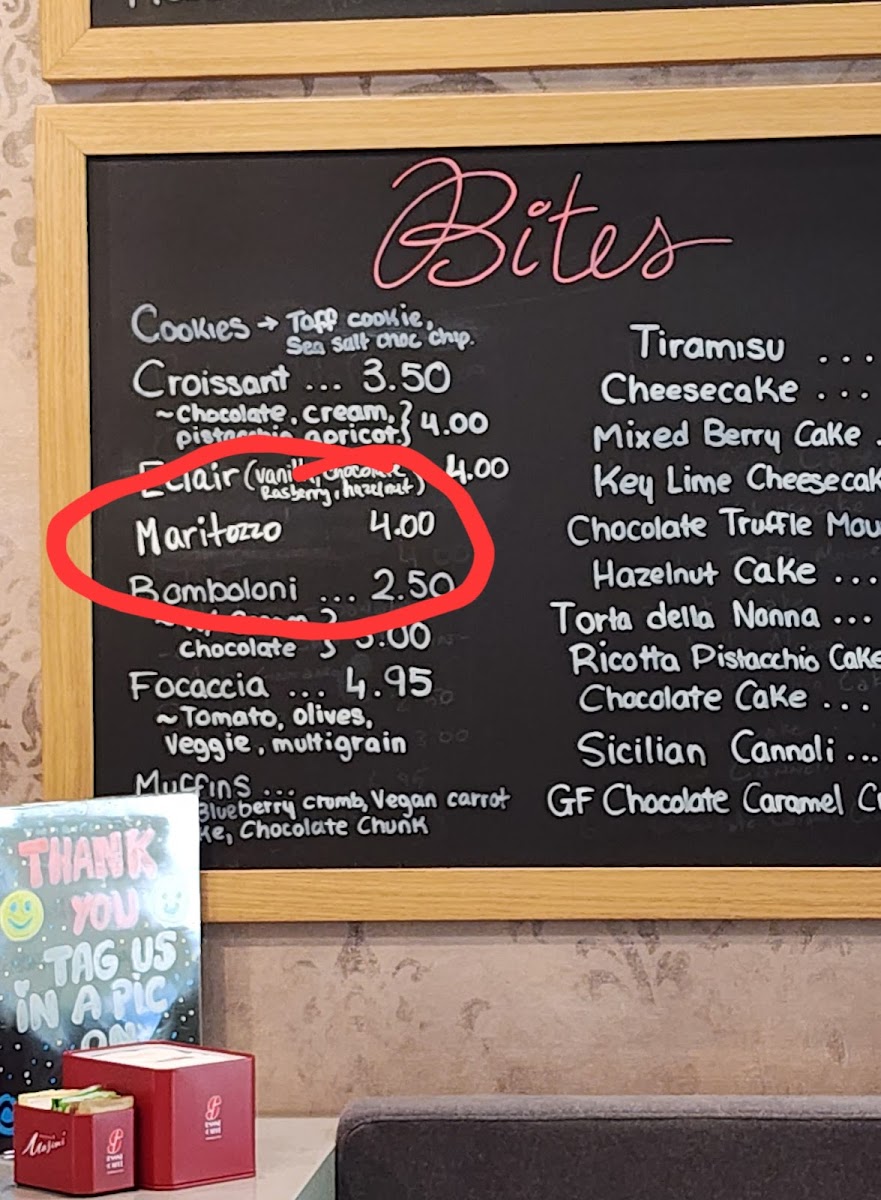 Bites
Cookies → Toff cookie,
Sea salt choc chip.
Croissant ... 3.50
~Chocolate, cream,
pistacchio, apricot} 4.00
Eclair (vanilla, chocolate 4.00
Rasberry, hazelnut)
Maritozzo 4.00
Bomboloni ... 2.50
chocolate } 3.00
Focaccia ... 4.95
~Tomato, olives,
Veggie, multigrain
Muffins ...
Blueberry crumb, Vegan carrot
Chocolate Chunk
Tiramisu ...
Cheesecake ...
Mixed Berry Cake .
Key Lime Cheesecak
Chocolate Truffle Mou
Hazelnut Cake ...
Torta della Nonna ...
Ricotta Pistacchio Cake
Chocolate Cake ...
Sicilian Cannoli ...
GF Chocolate Caramel
THANK
YOU
TAG US
IN A PIC
ON